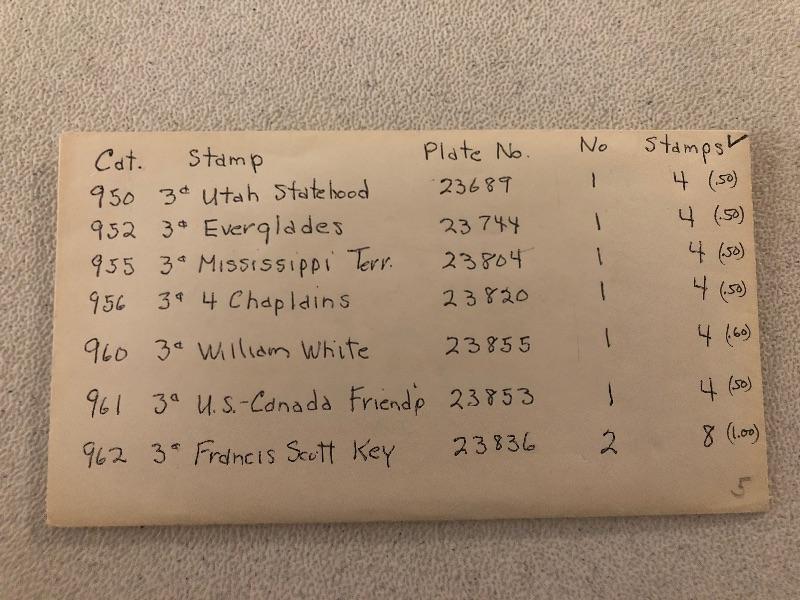 Cat. Stamp Plate No. No Stamps ✓
950 3¢ Utah Statehood 23689 1 4 (.50)
952 3¢ Everglades 23744 1 4 (.50)
955 3¢ Mississippi Terr. 23804 1 4 (.50)
956 3¢ 4 Chaplains 23820 1 4 (.50)
960 3¢ William White 23855 1 4 (.60)
961 3¢ U.S.-Canada Friend'p 23853 1 4 (50)
962 3¢ Francis Scott Key 23836 2 8 (1.00)
5